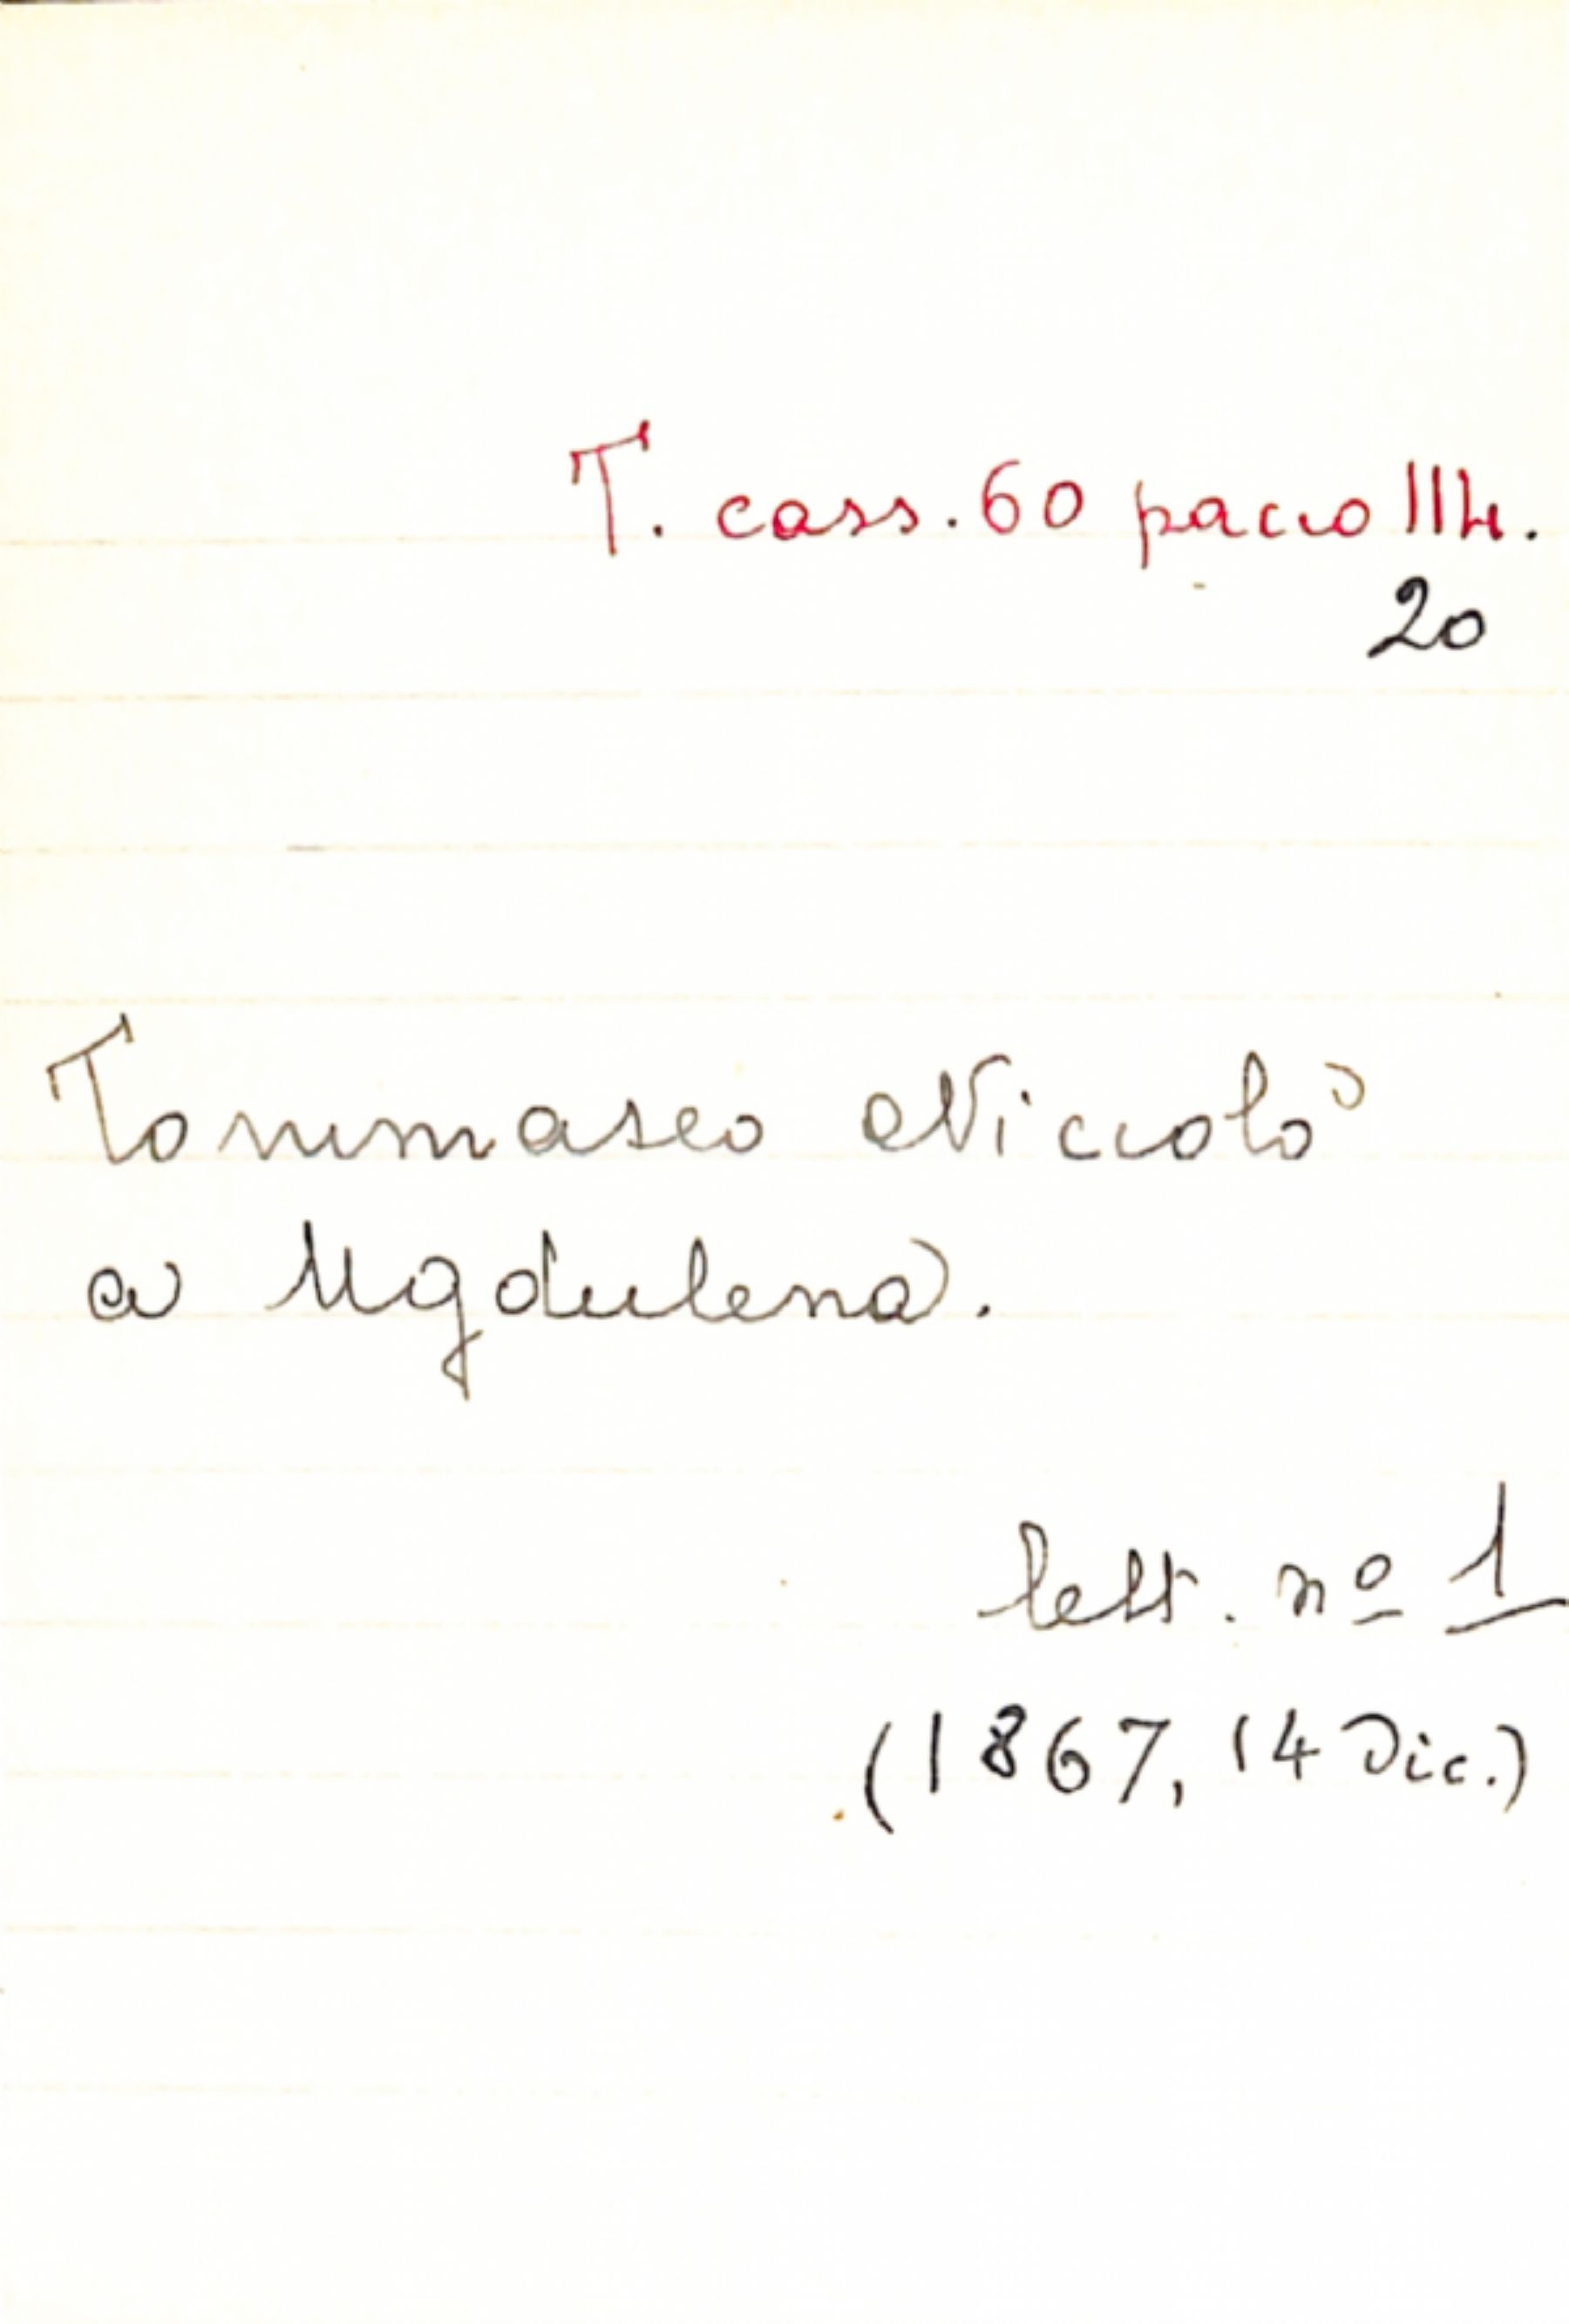 T. cass. 60 pacco 114.
20
Tommaseo Niccolò
a Ugdulena.
lett. nº 1
(1867, 14 Dic.)